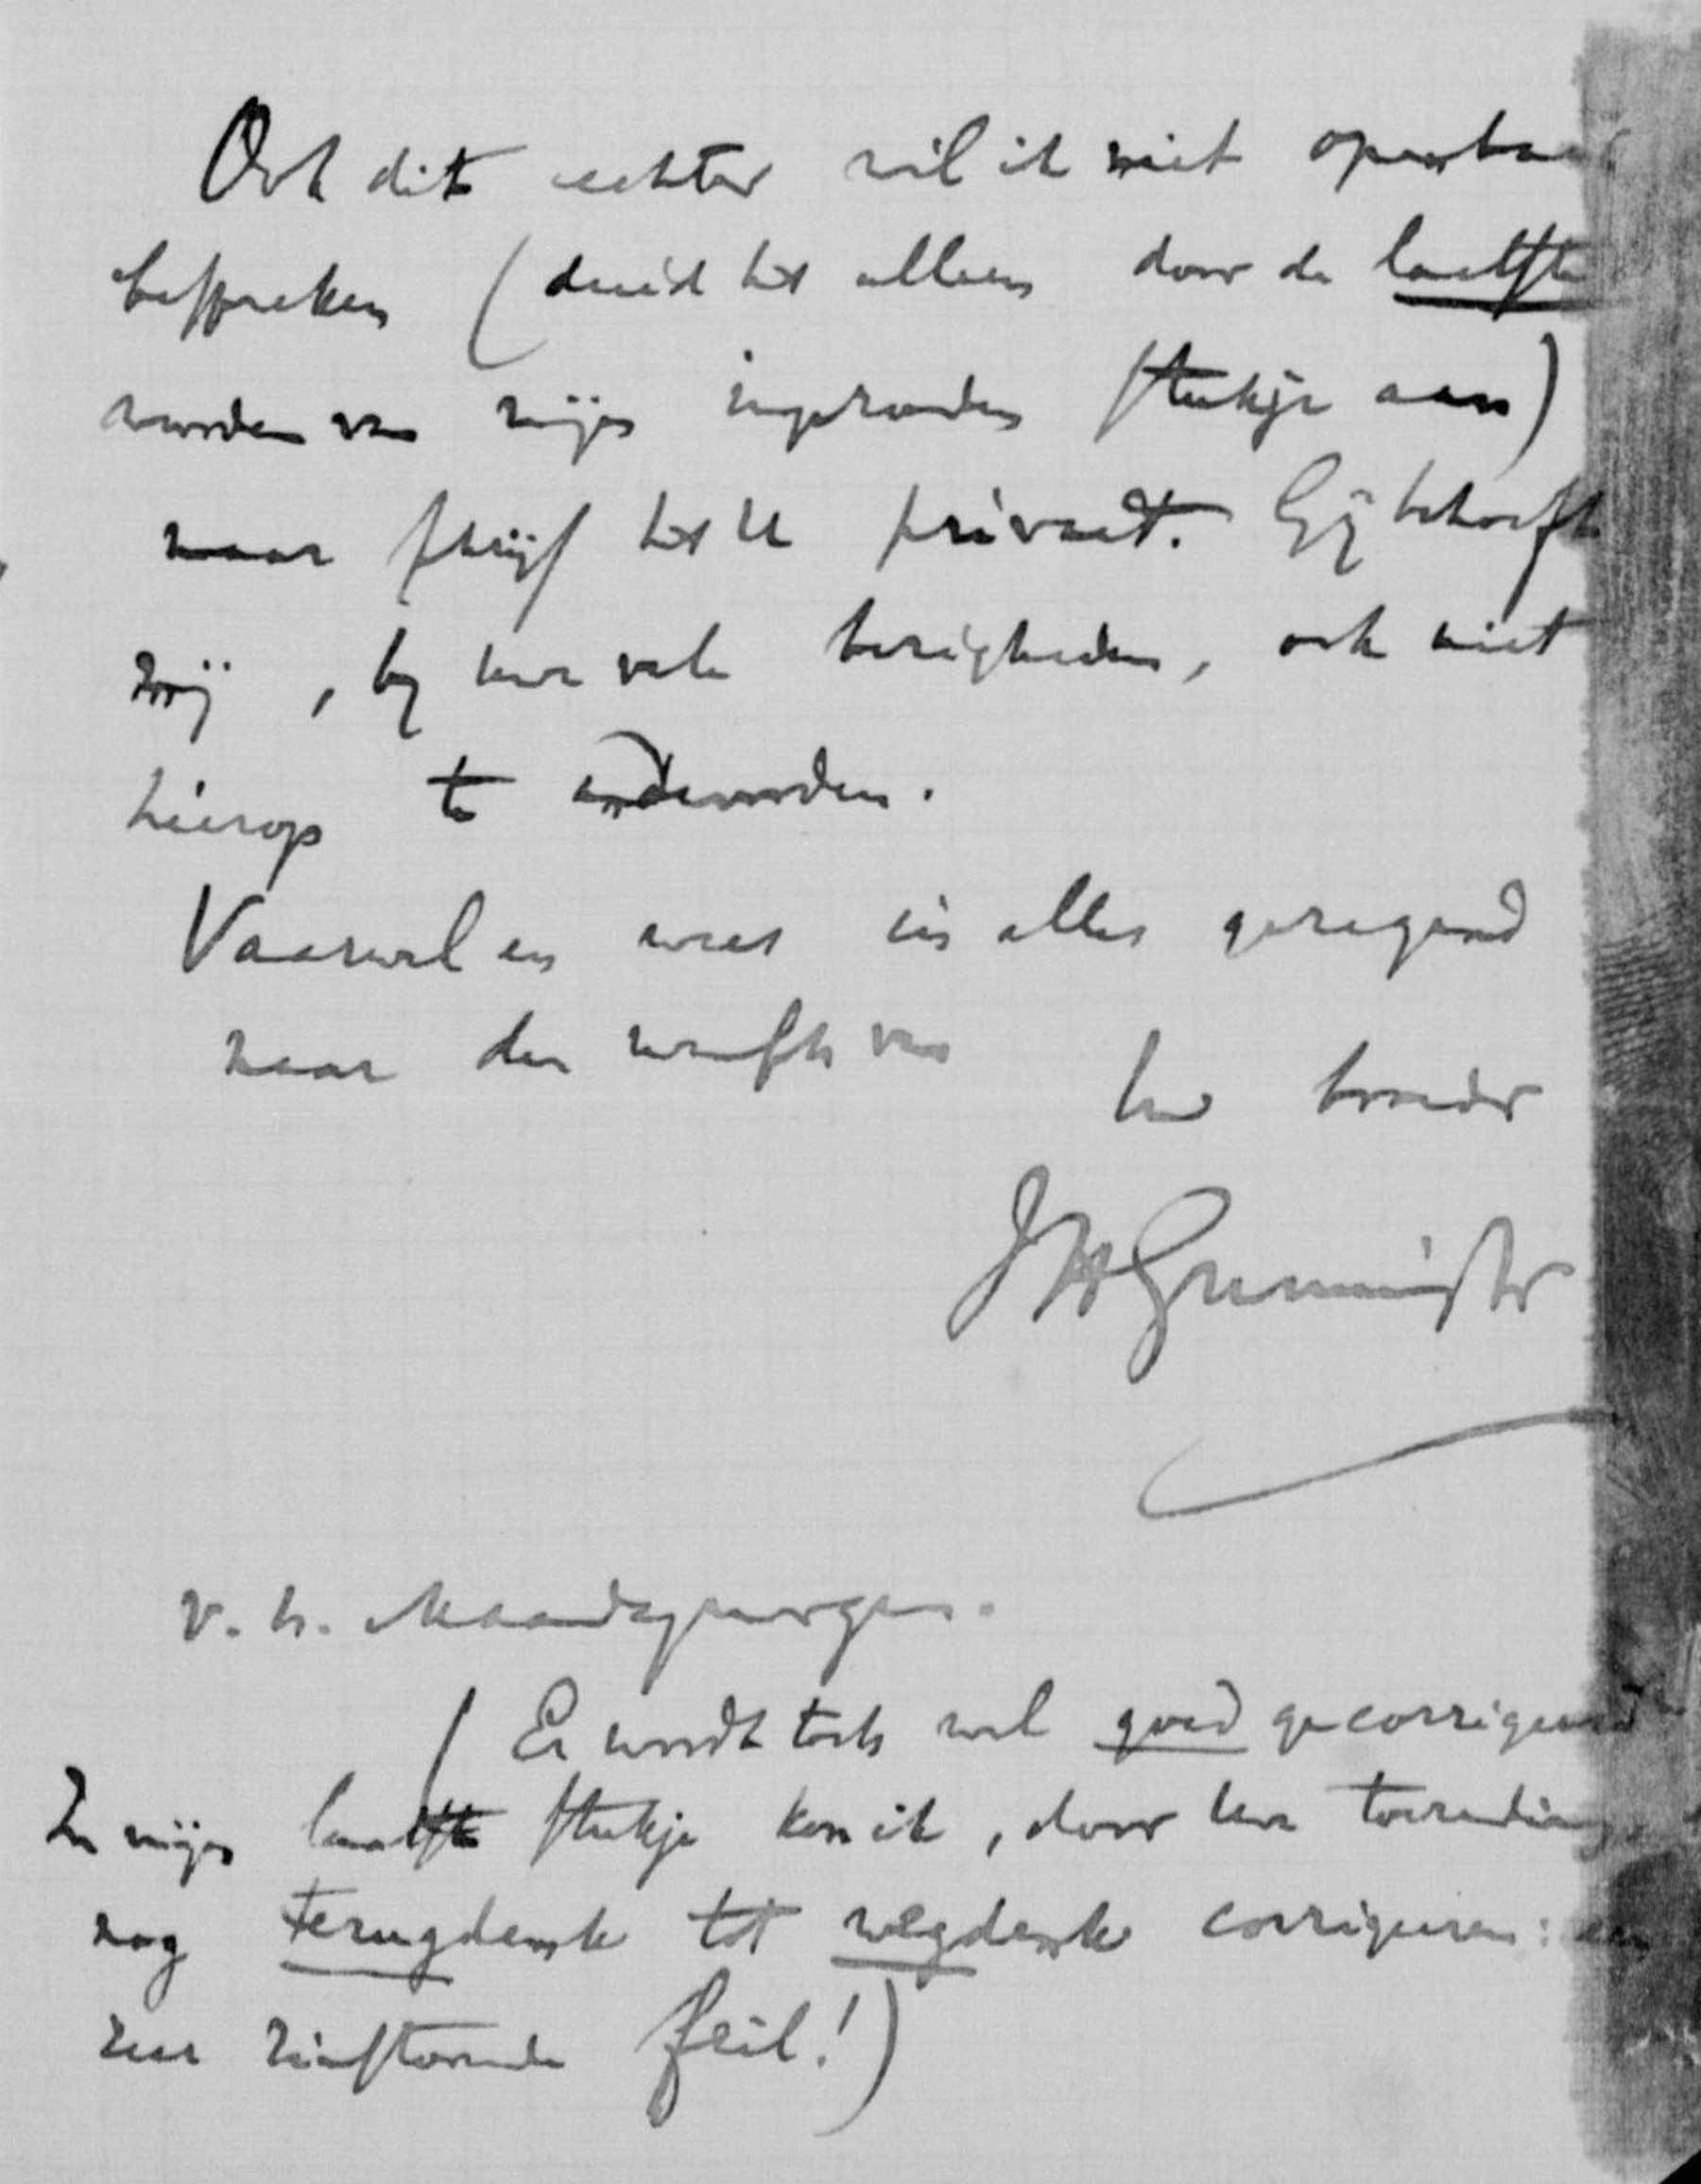 Ook dit echter wil ik niet openbaar
bespreken (duid het alleen door de laatste
woorden van mijn ingezonden stukje aan)
maar schrijf het U privaat. Gij behoeft
mij, bij uwe vele bezigheden, ook niet
hierop te antwoorden.
Vaarwel en wees in alles gezegend
naar den wensch van
Uw broeder
JH Gunning Jr
v. h. Maandagmorgen.
(Er wordt toch wel goed gecorrigeerd
In mijn laatste stukje kon ik, door uwe toezending
nog terugdenk tot wegdenk corrigeeren: een
zeer zinstorende feil!)